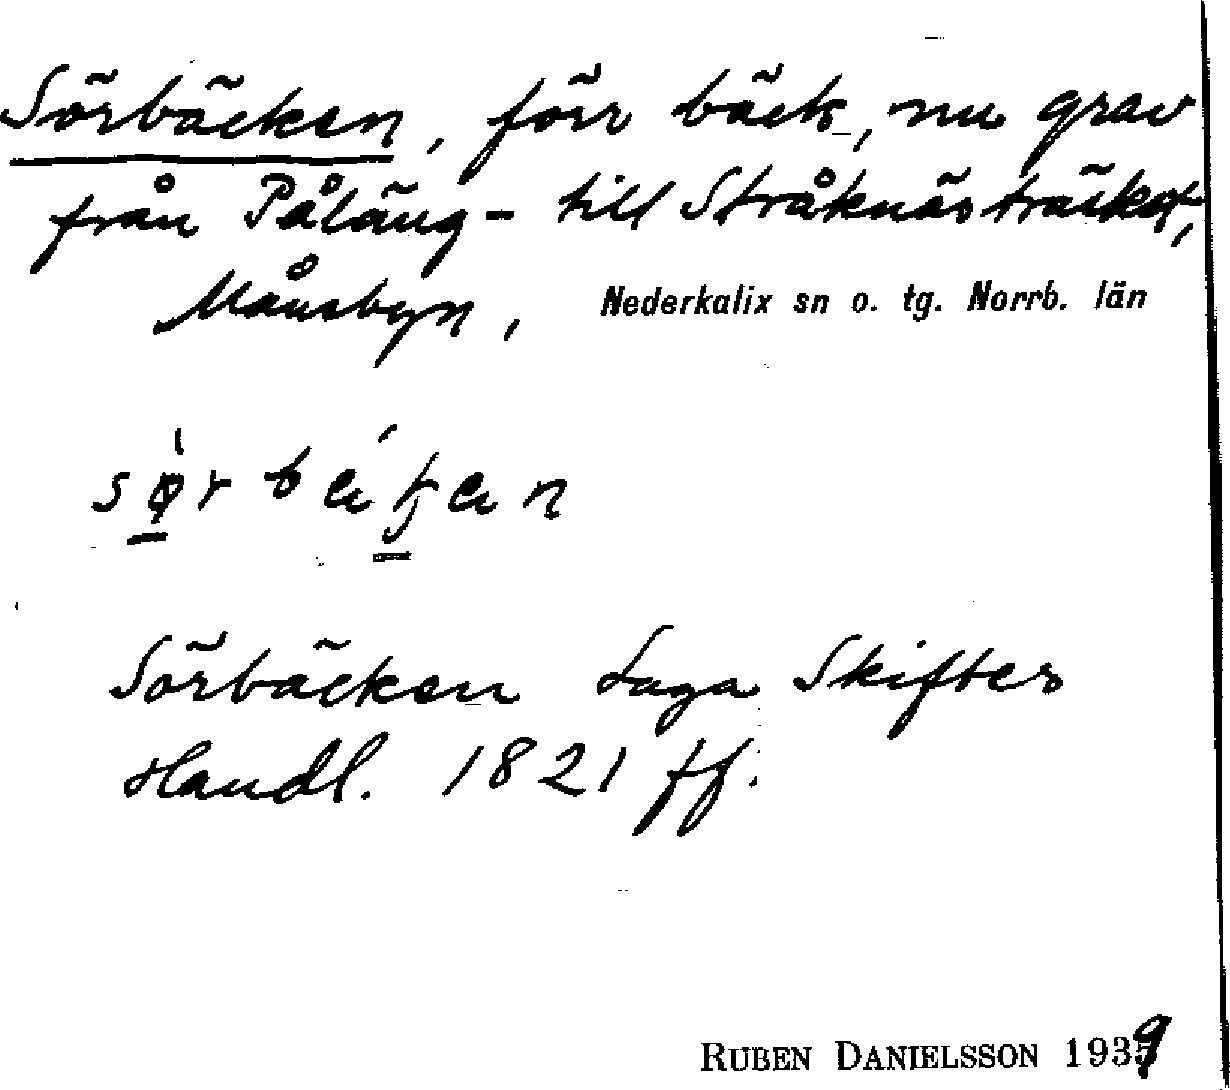 Sörbäcken, förr bäck, nu grav
från Påläng- till Stråknästräsket,
Månsbyn, Nederkalix sn o. tg. Norrb. län
Sörbäcken Laga Skiftes
Handl. 1821 ff.
RUBEN DANIELSSON 1939